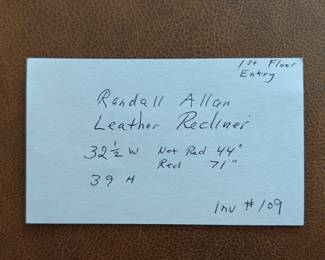 1st Floor
Entry
Randall Allan
Leather Recliner
32 ½ W Not Red 44"
Red 71"
39 H
Inv # 109